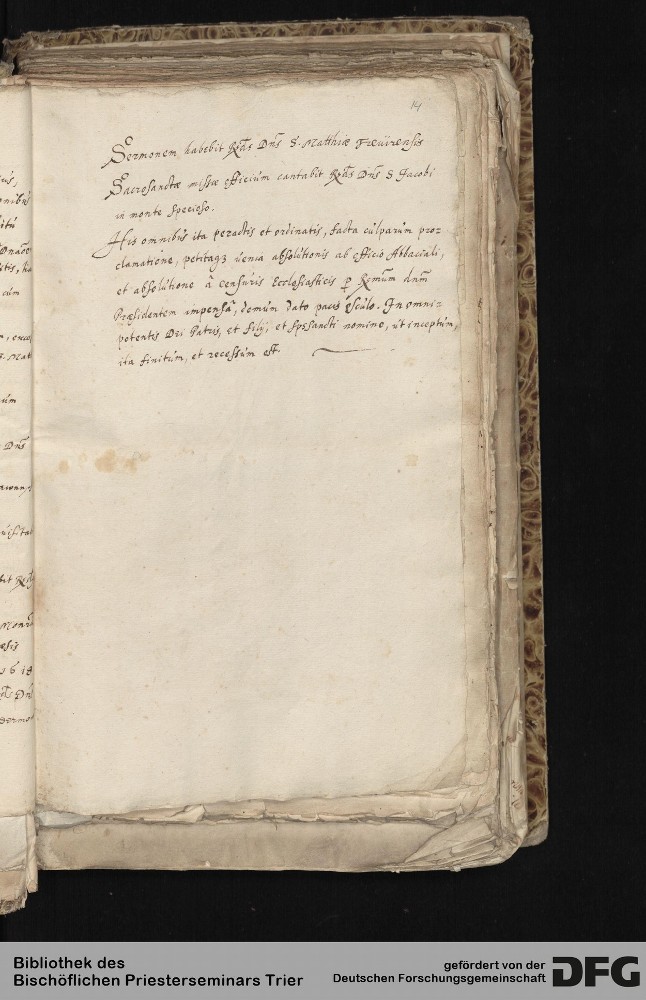 14
Sermonem habebit Rd͂s Dn͂s S. Matthiæ Treuirensis
Sacrosanctæ missæ officium cantabit Rd͂s Dn͂s S Jacobi
in monte specioso.
His omnibus ita peractis et ordinatis, facta culparum proc-
clamatione, petitaqz uenia absolutionis ab officio Abbaciali,
et absolutione à censuris Ecclesiasticis ꝑ Rm͂um dnm͂
Præsidentem impensâ, demum dato pacis osculo. In omni-
potentis Dei Patris, et filij, et Sp͂sancti nomine, ut inceptum,
ita finitum, et recessum est.
cum
Dn͂s
Bibliothek des
Bischöflichen Priesterseminars Trier
gefördert von der
Deutschen Forschungsgemeinschaft
DFG